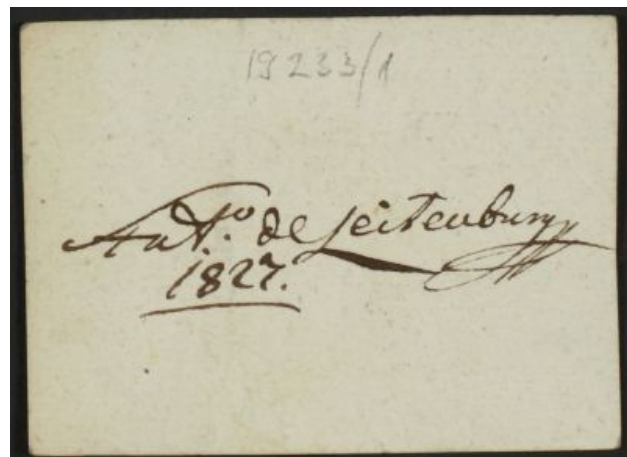 19233/1
Ant.º de Leitenburg
1827.